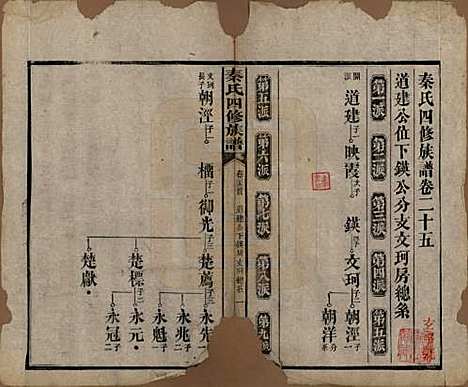 秦氏四修族譜卷二十五
道建公位下鍈公分支文珂房總系
第一派 第二派 第三派 第四派 第五派
道建 映霞 鍈 文珂 朝涇
朝洋
秦氏四修族譜
第五派 第六派 第七派 第八派 第九派
文珂長子 朝涇 櫺 御光 楚薦 永先
永兆
永魁
楚標 永元
永冠
楚獻